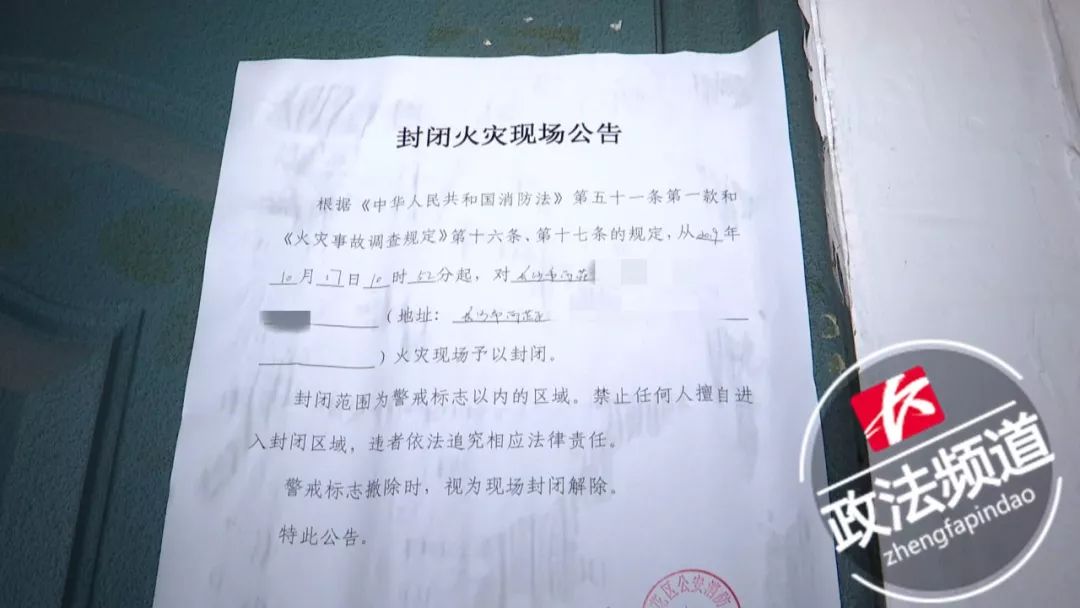 封闭火灾现场公告
根据《中华人民共和国消防法》第五十一条第一款和
《火灾事故调查规定》第十六条、第十七条的规定，从2019年
10月17日10时52分起，对长沙市雨花
（地址：长沙市雨花区
）火灾现场予以封闭。
封闭范围为警戒标志以内的区域。禁止任何人擅自进
入封闭区域，违者依法追究相应法律责任。
警戒标志撤除时，视为现场封闭解除。
特此公告。
花区公安消防
政法频道
zhengfapindao